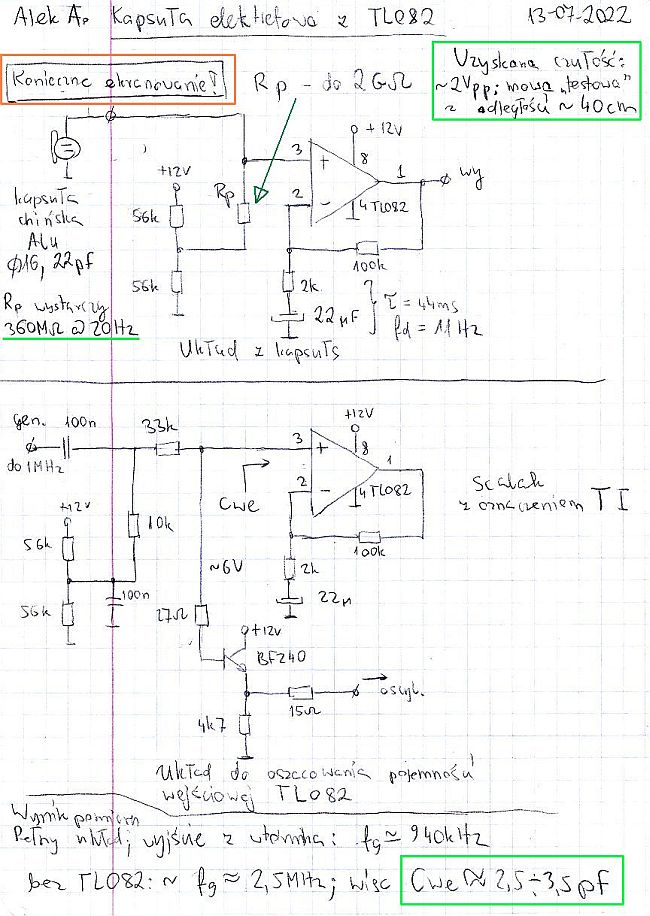 Alek A. Kapsuła elektretowa z TL082 13-07-2022
Konieczne ekranowanie!
Rp - do 2GΩ
Uzyskana czułość:
~2Vpp; mowa „testowa"
z odległości ~40cm
+12V
3
8
1
wy
+
+12V
Rp
2
-
4 TL082
56k
kapsuła
chińska
Alu
Φ16, 22pf
100k
56k
2k
22μF
τ = 44ms
fd = 11Hz
Rp wystarczy
360MΩ @ 20Hz
Układ z kapsułą
gen.
100n
33k
+12V
3
8
1
+
do 1MHz
2
-
4 TL082
Cwe
Scalak
z oznaczeniem TI
+12V
10k
56k
100k
~6V
2k
100n
22μ
56k
27Ω
+12V
BF240
oscyl.
15Ω
4k7
Układ do oszacowania pojemności
wejściowej TL082
Wynik pomiaru
Pełny układ; wyjście z wtórnika: fg ≃ 940kHz
bez TL082: ~ fg ≈ 2,5MHz; więc Cwe ≈ 2,5÷3,5pf